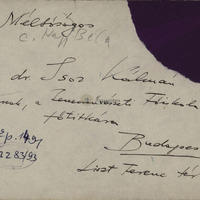 Méltóságos
c. Nagy Béla
dr. Isoz Kálmán
nak, a Zeneművészeti Főiskola
főtitkára
Budapes
Liszt Ferenc tér
2283/93